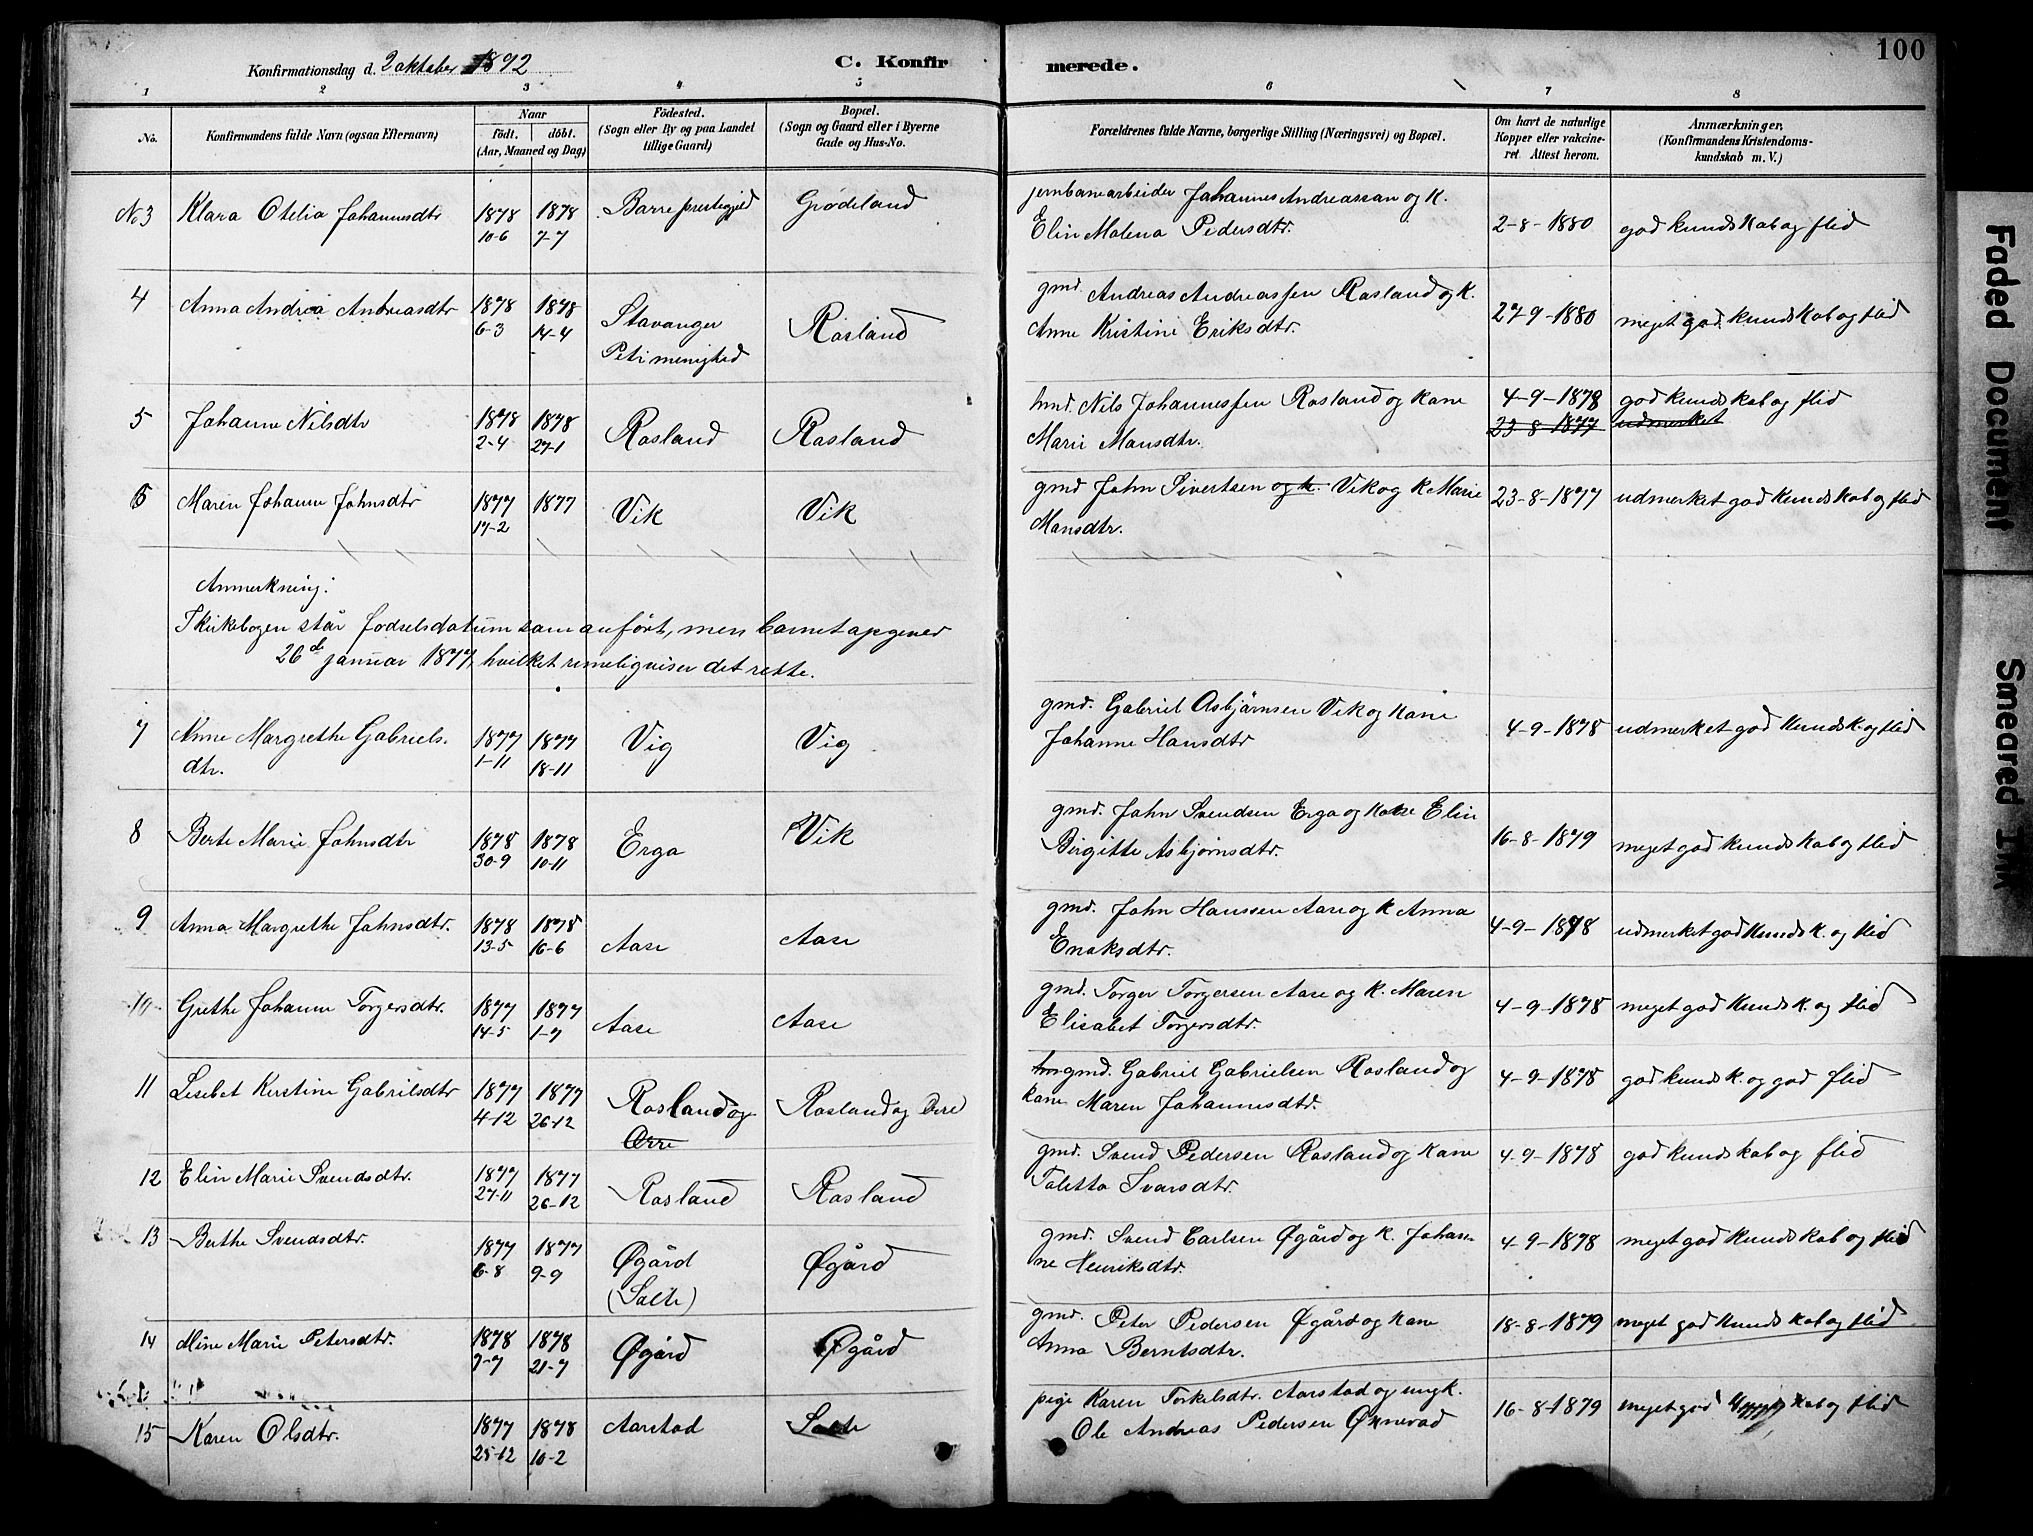 100
Konfirmationsdag d. 2 oktober 1892
C. Konfirmerede.
1 2 3 4 5 6 7 8
No.
Konfirmandens fulde Navn (ogsaa Efternavn)
Naar
födt. döbt.
(Aar, Maaned og Dag)
Födested.
(Sogn eller By og paa Landet
tillige Gaard)
Bopæl.
(Sogn og Gaard eller i Byerne
Gade og Hus-No.
Forældrenes fulde Navne, borgerlige Stilling (Næringsvei) og Bopæl.
Om havt de naturlige
Kopper eller vakcine-
ret Attest herom.
Anmærkninger,
(Konfirmandens Kristendoms-
kundskab m. V.)
No 3 Klara Otelia Johannesdtr 1878 10-6 1878 7-7 Borre prestegjeld Grødeland jernbanearbeider Johannes Andreassan og k.
Elin Malena Pedersdtr. 2-8-1880 god kundskab og flid
4 Anna Andrea Andreasdtr 1878 6-3 1878 14-4 Stavanger
Petri menighed Rosland gmd. Andreas Andreassen Rosland og k.
Anne Kristine Eriksdtr. 27-9-1880 meget god kundskab og flid
5 Johanne Nilsdtr 1878 2-4 1878 27-1 Rosland Rosland hmd. Nils Johannessen Rosland og kone
Marie Mansdtr. 4-9-1878 god kundskab og flid
23-8-1877 udmerket
6 Maren Johanne Johnsdtr 1877 17-2 1877 Vik Vik gmd John Sivertsen og k. Vik og k Marie
Mansdtr. 23-8-1877 udmerket god kundskab og flid
Anmerkning:
I kirkebogen står fødselsdatum som anført, men barnet opgiver
26de januar 1877, hvilket rimeligviser det rette.
7 Anne Margrethe Gabriels-
dtr. 1877 1-11 1877 18-11 Vig Vig gmd. Gabriel Asbjørnsen Vik og kone
Johanne Hansdtr 4-9-1878 udmerket god kundsk. og flid
8 Berte Marie Johnsdtr 1878 30-9 1878 10-11 Erga Vik gmd. John Svendsen Erga og kone Elin
Birgitte Asbjørnsdtr. 16-8-1879 meget god kundskab og flid
9 Anna Margrethe Johnsdtr. 1878 13-5 1878 16-6 Aase Aase gmd. John Hanssen Aase og k Anna
Enoksdtr. 4-9-1878 udmerket god kundsk. og flid
10 Grethe Johanne Torgersdtr. 1877 14-5 1877 1-7 Aase Aase gmd. Torger Torgersen Aase og k. Maren
Elisabet Torgersdtr. 4-9-1878 meget god kundsk. og flid
11 Lisebet Kirstine Gabrielsdtr 1877 4-12 1877 26-12 Rosland og
Orre Rosland og Orre gmd. Gabriel Gabrielsen Rosland og
kone Maren Johannesdtr. 4-9-1878 god kundsk. og god flid
12 Elin Marie Svendsdtr. 1877 27-11 1877 26-12 Rosland Rosland gmd. Svend Pedersen Rosland og kone
Toletta Ivarsdtr. 4-9-1878 god kundskab og flid
13 Berthe Svendsdtr. 1877 6-8 1877 9-9 Øgård
(Salte) Øgård gmd. Svend Carlsen Øgård og k. Johan-
ne Henriksdtr. 4-9-1878 meget god kundskab og flid
14 Mine Marie Petersdtr. 1878 7-7 1878 21-7 Øgård Øgård gmd. Peter Pedersen Øgård og kone
Anna Berntsdtr. 18-8-1879 meget god kundskab og flid
15 Karen Olsdtr. 1877 25-12 1878 10-2 Aarstad Salte pige Karen Torkelsdtr. Aarstad og ungk.
Ole Andreas Pedersen Øxnevad 16-8-1879 meget god kab og flid
Faded Document
Smeared Ink